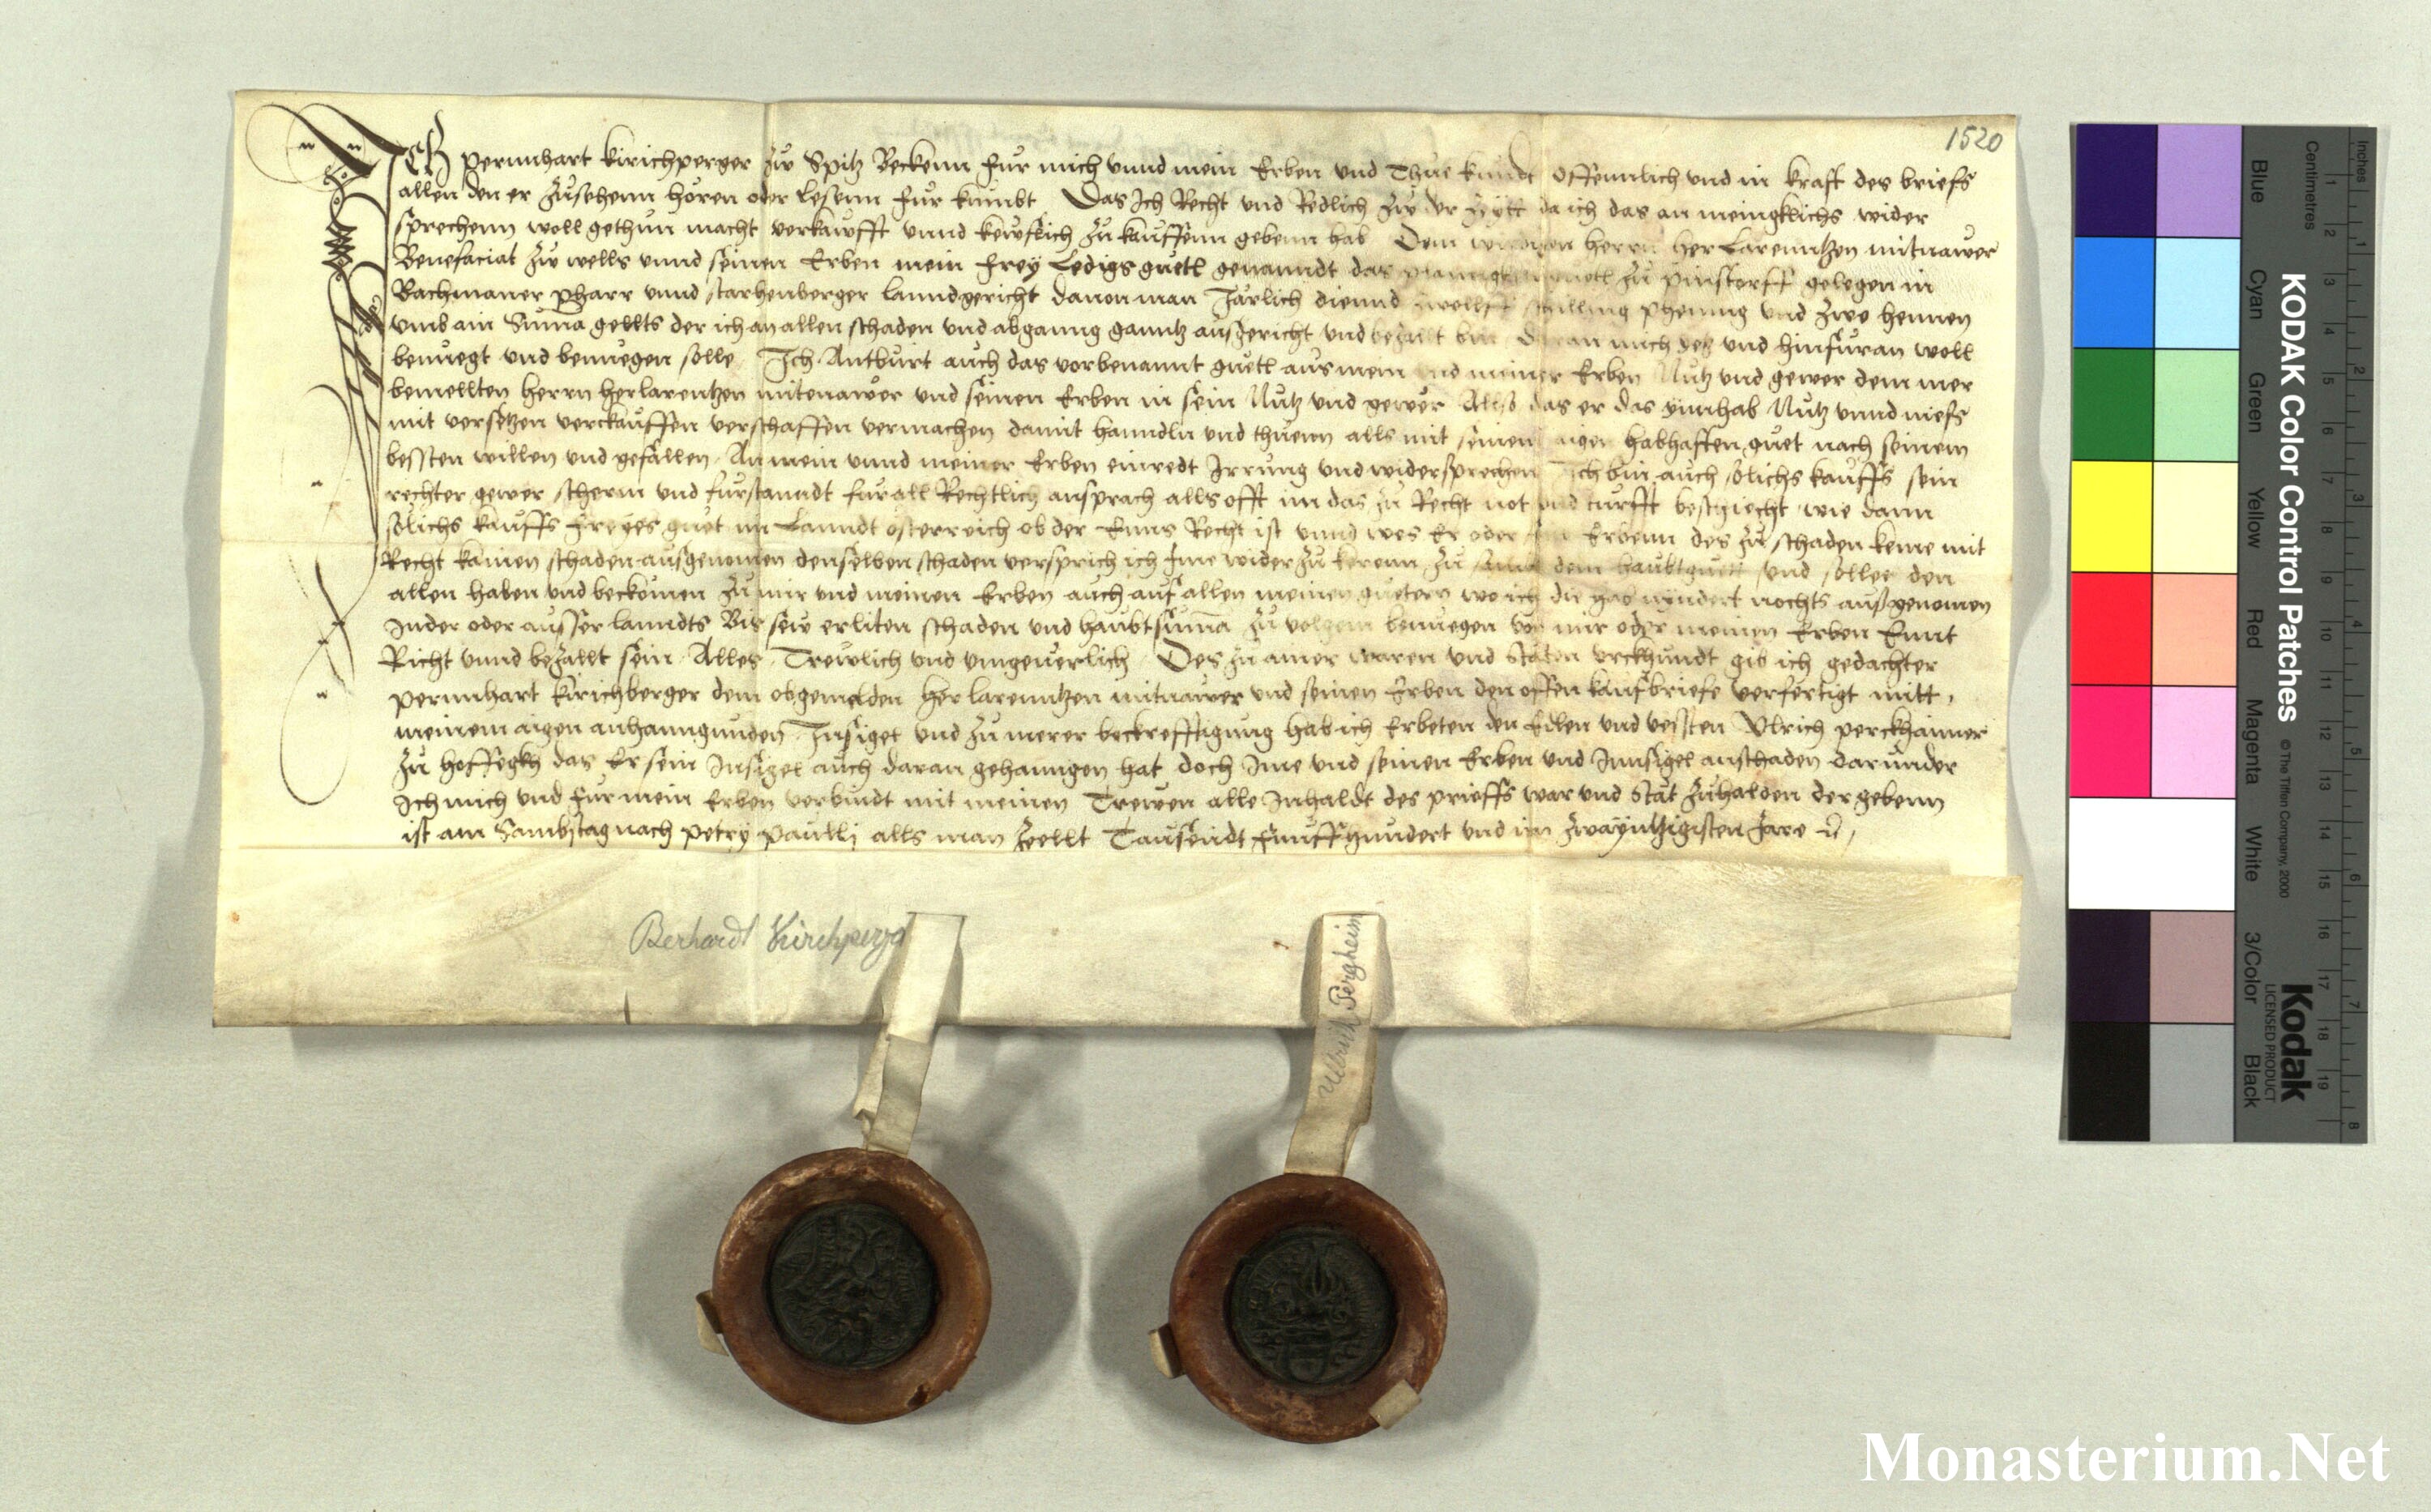 1520
Ich pernnhart kirichperger zw Spitz Beckenn fur mich vnnd mein Erben vnd Thue kundt offennlich vnd in kraft des briefs
allen den er zusehenn horen oder lesenn fur kumbt Das Ich Recht vnd Redlich zw der zeytt da ich das an meingklichs wider
sprechenn woll gethun macht verkawfft vnnd kewfflich zu kauffenn gebenn hab Dem herrn her Larenntzen mitnawer
Benefaciat zw wells vnnd seinen Erben mein frey Ledigs guetl genanndt das guetl zu pinstorff gelegen in
Bachmaner pharr vnnd starhenberger lanndgericht dauon man Jarlich diennd zwellff schilling phening vnd zwo hennen
vmb ain Suma gellts der ich an allen schaden vnd abganng ganntz ausgericht vnd bezallt bin Daran mich yetz vnd hinfuran woll
benuegt vnd benuegen solle Ich Antburt auch das vorbenannt guetl aus mein vnd meiner Erben Nutz vnd gewer dem mer
bemellten herrn her larentzen mitenawer vnd seinen Erben in sein Nutz vnd gewer Allso das er das ynnhab Nutz vnnd niess
mit versetzen verckauffen verschaffen vermachen damit hanndln vnd thuenn alls mit seinem aigen habhafften guet nach seinem
bessten willen vnd gefallen An mein vnnd meiner Erben einredt Irrung vnd widersprechen Ich bin auch solichs kauffs sein
rechter gewer scherm vnd furstanndt fur all Rechtlich ansprach alls offt im das zu Recht not vnd turfft beschiecht wie dann
solichs kauffs freyes guet im Lanndt osterreich ob der Enns Recht ist vnnd wes Er oder sein Erbenn des zu schaden keme mit
Recht kainen schaden ausgenomen denselben schaden versprich ich Ime wider zu kerenn zu sambt dem haubtguett vnd sollen den
allen haben vnd beckomen zu mir vnd meinen Erben auch auf allen meinen guetern wo ich die hab nyndert nichts aussgenomen
Inder oder ausser lanndts Bis sew erliten schaden vnd haubtsuma zu volgem benuegen von mir oder meinen Erben Ennt
Richt vnnd bezallt sein Alles Trewlich vnd vngeuerlich Des zu ainer waren vnd Staten vrckhundt gib ich gedachter
pernnhart kirichberger dem obgemelden her larenntzen mitnawer vnd seinen Erben den offen kaufbriefe verfertigt mitt
meinem aigen anhanngunden Insigel vnd zu merer beckrefftigung hab ich Erbeten den Edlen vnd vessten Vlrich perckhaimer
zu hoffegkh das Er sein Insigel auch daran gehanngen hat doch Ime vnd seinen Erben vnd Innsigel an schaden darunder
Ich mich vnd fur mein Erben verbindt mit meinen Trewen alle Inhaldt des prieffs war vnd Stat zuhalden der gebenn
ist am Sambstag nach petry paulli alls man zellt Tausendt funffhundert vnd im zwayntzigisten Jare
Berhardt Kirchperg
Ulrich Pergheim
KODAK Color Control Patches © The Tiffen Company, 2000
Kodak
LICENSED PRODUCT
Blue Cyan Green Yellow Red Magenta White 3/Color Black
Inches 1 2 3 4 5 6 7 8
Centimetres 1 2 3 4 5 6 7 8 9 10 11 12 13 14 15 16 17 18 19
Monasterium.Net